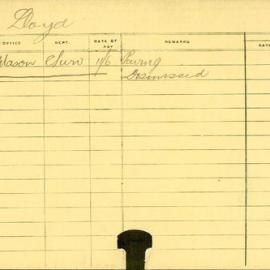 Lloyd
OFFICE DEPT. RATE OF PAY REMARKS DATE
Mason 11/6 Paving
Dismissed